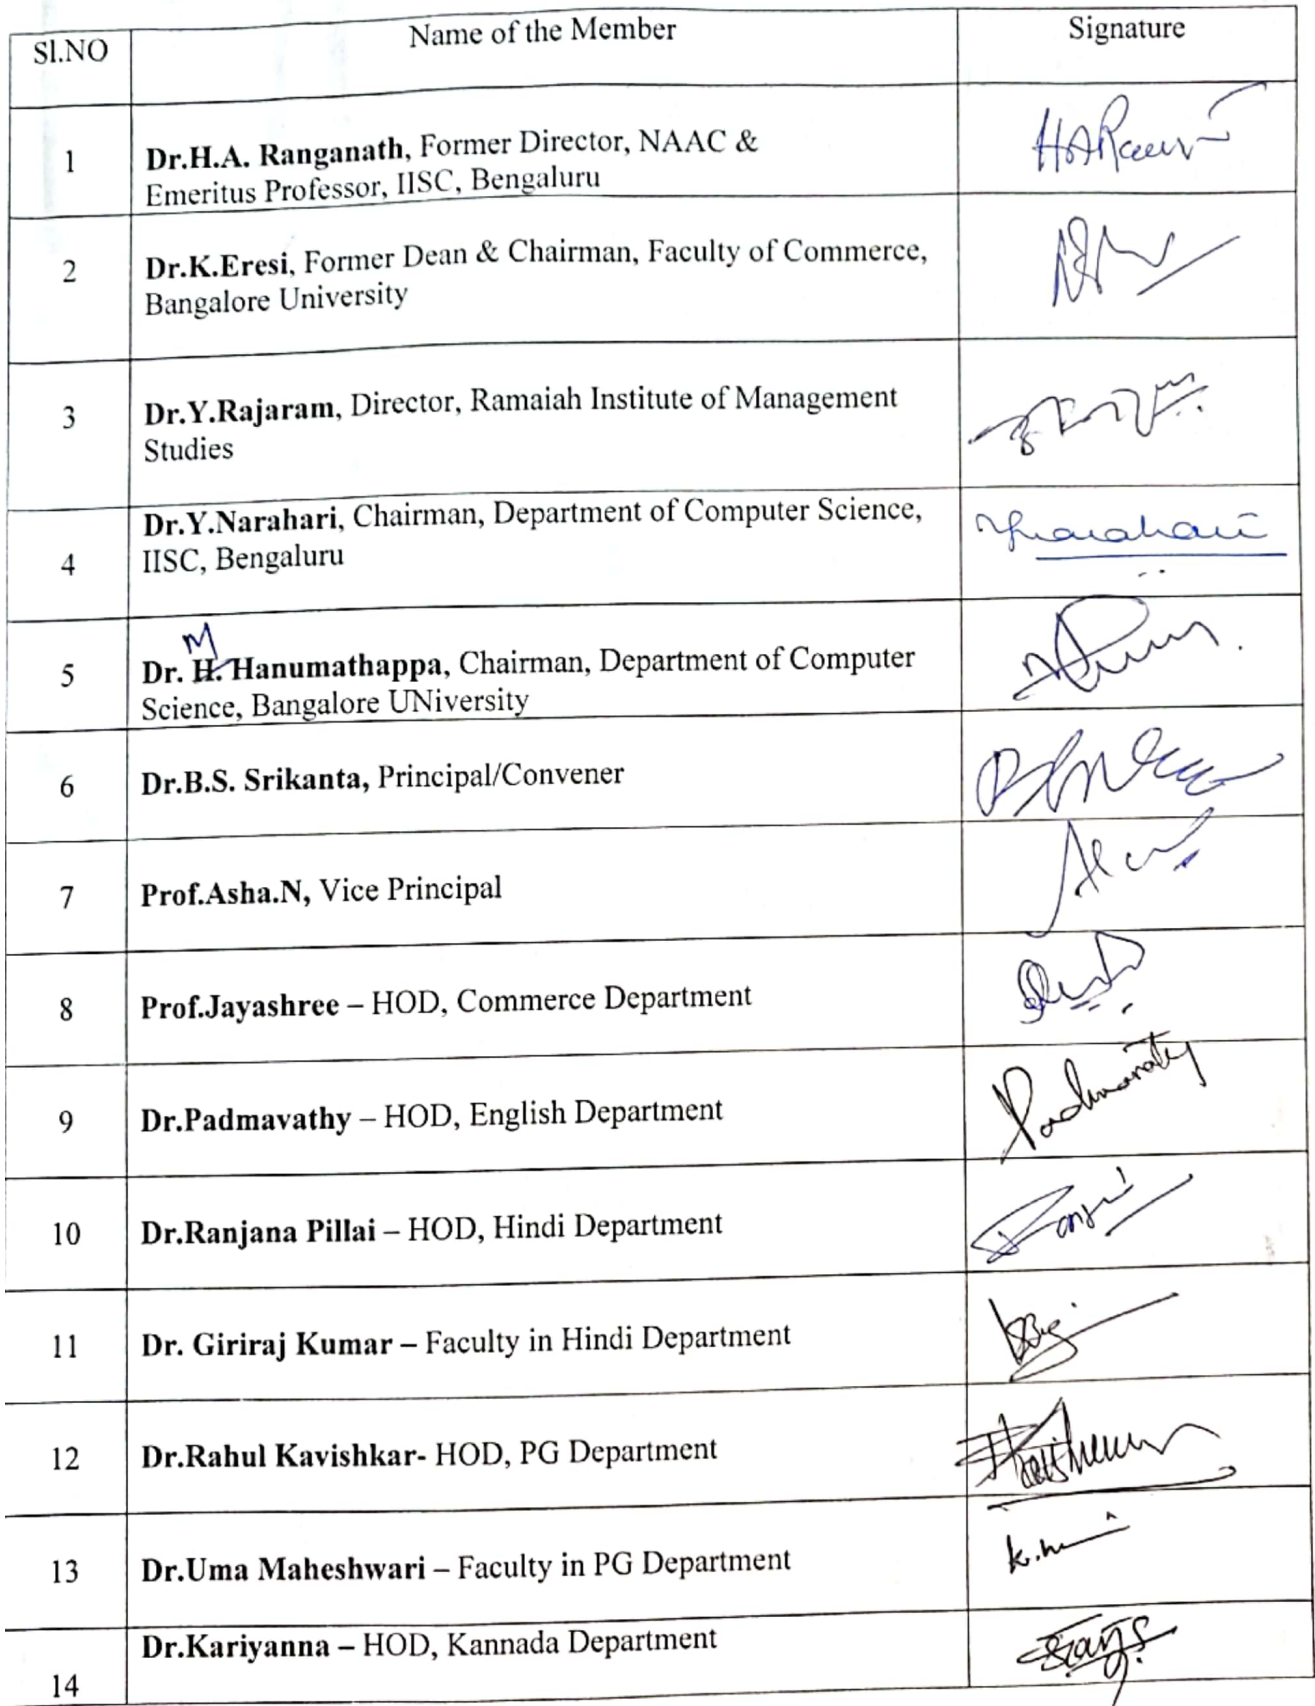 Sl.NO Name of the Member Signature
1 Dr.H.A. Ranganath, Former Director, NAAC &
Emeritus Professor, IISC, Bengaluru
2 Dr.K.Eresi, Former Dean & Chairman, Faculty of Commerce,
Bangalore University
3 Dr.Y.Rajaram, Director, Ramaiah Institute of Management
Studies
Dr.Y.Narahari, Chairman, Department of Computer Science, Ynarahari
4 IISC, Bengaluru
M
5 Dr. H. Hanumathappa, Chairman, Department of Computer
Science, Bangalore UNiversity
6 Dr.B.S. Srikanta, Principal/Convener
7 Prof.Asha.N, Vice Principal
8 Prof.Jayashree – HOD, Commerce Department
9 Dr.Padmavathy – HOD, English Department Padmavathy
10 Dr.Ranjana Pillai – HOD, Hindi Department
11 Dr. Giriraj Kumar – Faculty in Hindi Department
12 Dr.Rahul Kavishkar- HOD, PG Department
13 Dr.Uma Maheshwari – Faculty in PG Department
Dr.Kariyanna – HOD, Kannada Department
14